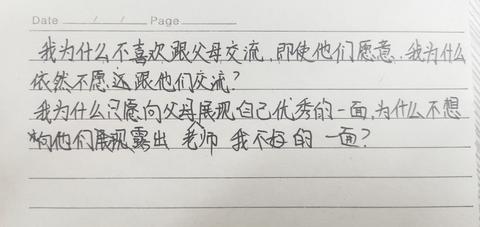 Date / / Page
我为什么不喜欢跟父母交流,即使他们愿意,我为什么
依然不愿远跟他们交流?
我为什么只愿向父母展现自己优秀的一面,为什么不想
向他们展现露出 老师 我不好的 一面?